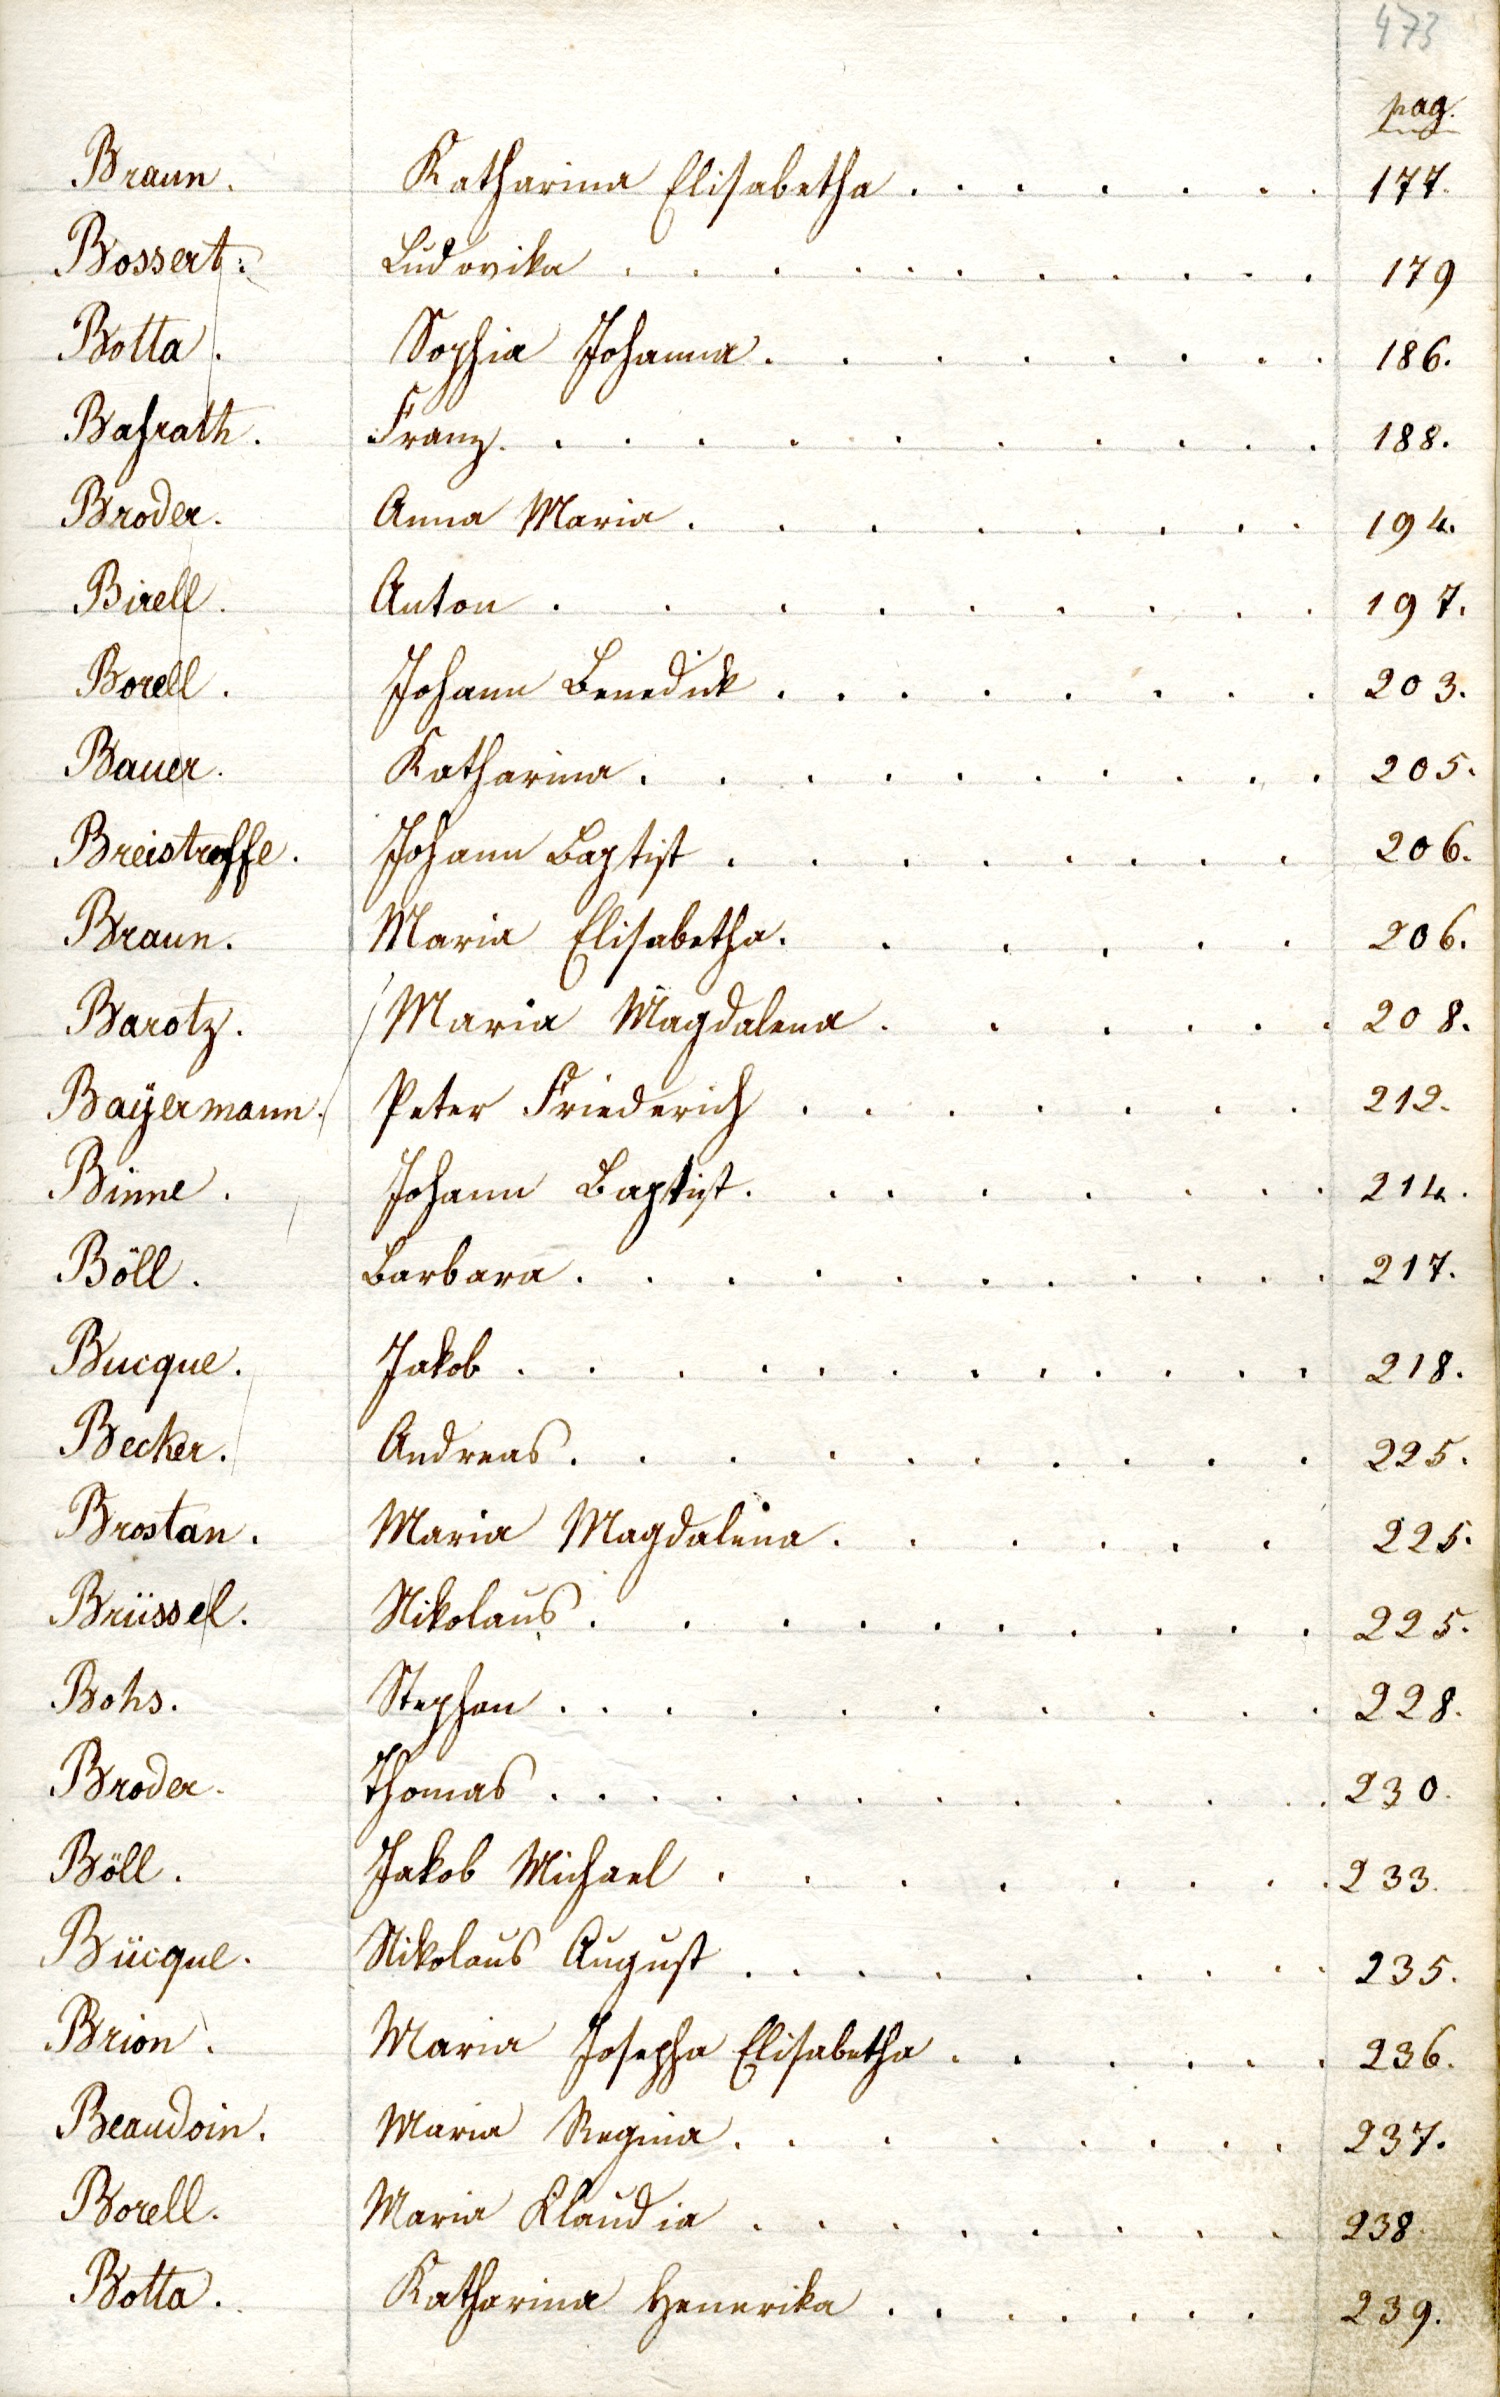 473
pag.
Braun. Katharina Elisabetha 177.
Bossert. Ludovika 179
Botta. Sophia Johanna 186.
Basrath. Franz 188.
Broder. Anna Maria 194.
Birell. Anton 197.
Borell. Johann Benedick 203.
Bauer. Katharina 205.
Breistroffe. Johann Baptist 206.
Braun. Maria Elisabetha 206.
Barotz. Maria Magdalena 208.
Bayermann. Peter Friederich 212.
Binne. Johann Baptist 214.
Böll. Barbara 217.
Bucque. Jakob 218.
Becker. Andreas 225.
Brostan. Maria Magdalena 225.
Brüssel. Nikolaus 225.
Bohs. Stephan 228.
Broder. Thomas 230.
Böll. Jakob Michael 233.
Bücque. Nikolaus August 235.
Brion. Maria Josepha Elisabetha 236.
Beaudoin. Maria Regina 237.
Borell. Maria Klaudia 238.
Botta. Katharina Henerika 239.